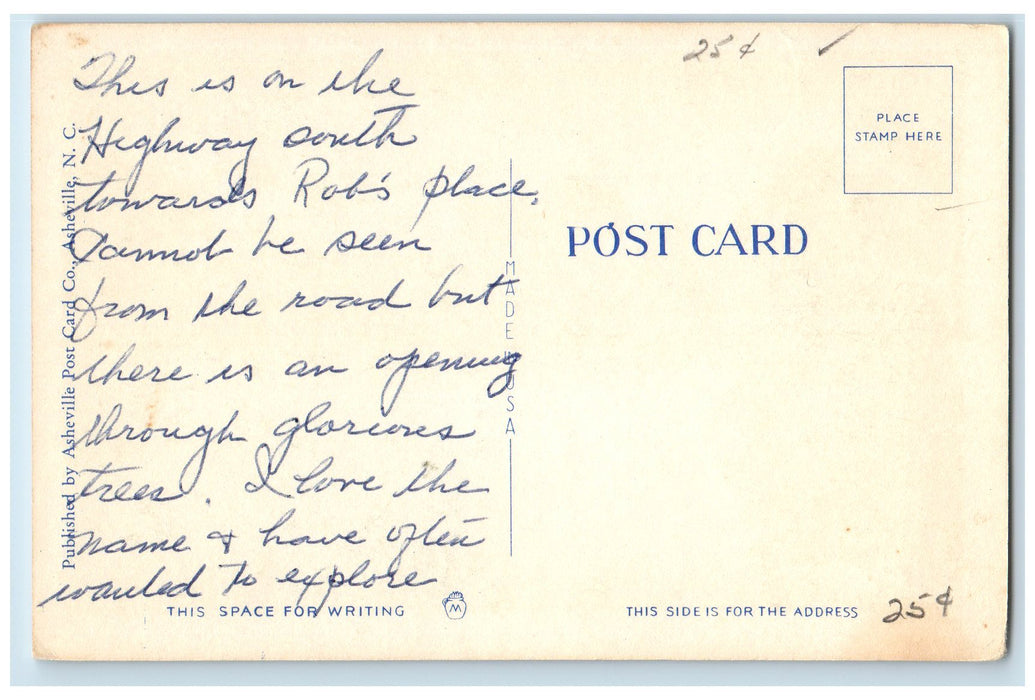 This is on the
Highway south
towards Rob's place.
Cannot be seen
from the road but
there is an opening
through glorious
trees. I love the
name & have often
wanted to explore
Published by Asheville Post Card Co., Asheville, N. C.
THIS SPACE FOR WRITING
M
MADE IN USA
25¢
PLACE
STAMP HERE
POST CARD
THIS SIDE IS FOR THE ADDRESS
25¢